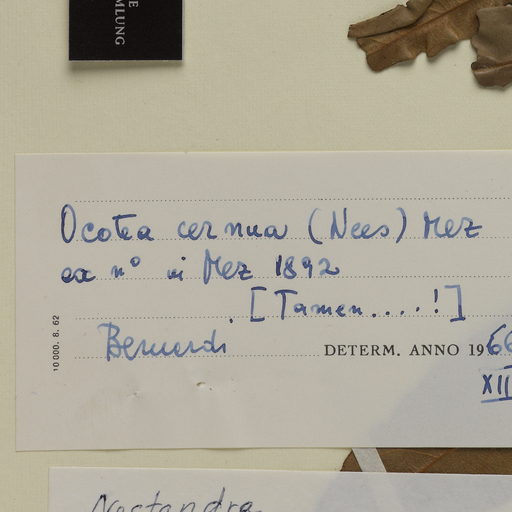 MLUNG
Ocotea cernua (Nees) Mez
ex nº in Mez 1892
. [Tamen....!]
Bernardi
DETERM. ANNO 1966
XII
10 000. 8. 62
Nectandra